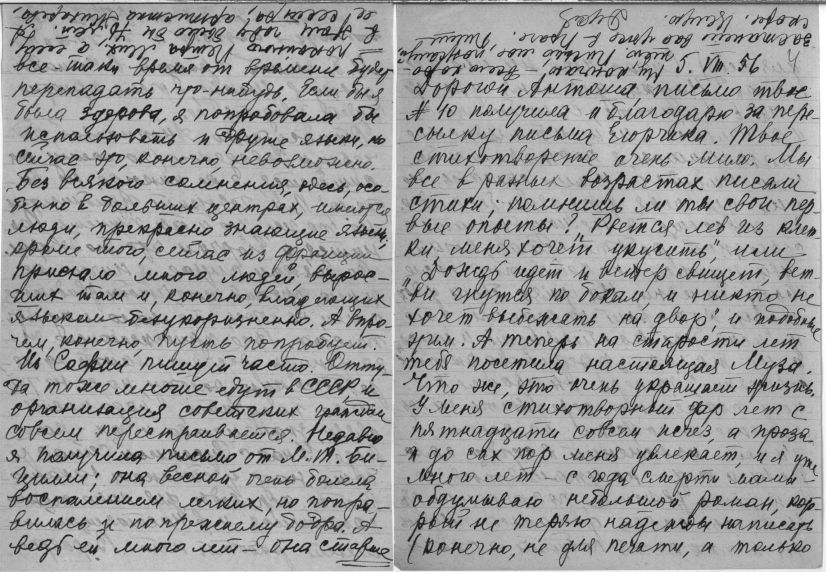 все-таки время от времени будет
перепадать что-нибудь. Если бы я
была здорова, я попробовала бы
использовать и другие языки, но
сейчас это, конечно, невозможно.
Без всякого сомнения, здесь, осо-
бенно в больших центрах, имеются
люди, прекрасно знающие языки,
кроме того, сейчас из Франции
приехало много людей, вырос-
ших там и, конечно, владеющих
языком безукоризненно. А впро-
чем, конечно, пусть попробует.
Из Софии пишут часто. Отту-
да тоже многие едут в СССР, и
организация советских граждан
совсем перестраивается. Недавно
я получила письмо от М. Т.
она весной очень болела
воспалением легких, но попра-
вилась и по прежнему бодра. А
ведь ей много лет — она старше
5. VIII. 56 4
Дорогой Антоша, письмо твое
№ 10 получила и благодарю за пере-
сылку письма Егорчика. Твое
стихотворение очень мило. Мы
все в разных возрастах писали
стихи; помнишь ли ты свои пер-
вые опыты? „Рвется лев из клет-
ки меня хочет укусить", или
„Дождь идет и ветер свищет, вет-
ви гнутся по бокам и никто не
хочет выбежать на двор", и подобные
им. А теперь на старости лет
тебя посетила настоящая Муза.
Что же, это очень украшает жизнь.
У меня стихотворный дар лет с
пятнадцати совсем исчез, а проза
и до сих пор меня увлекает, и я уже
много лет — с года смерти мамы —
обдумываю небольшой роман, кото-
рый не теряю надежды написать
(конечно, не для печати, а только
застанет вас уже в Праге. Пиши
скорей. Целую. Дуся